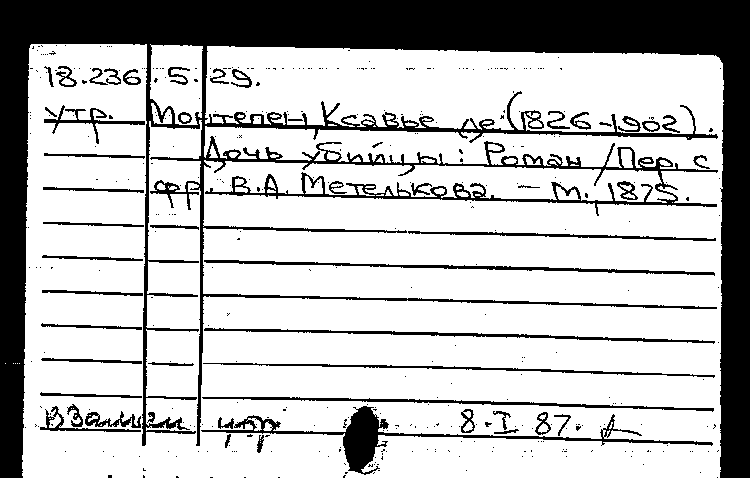 18.236.5.29.
утр. Монтепен, Ксавье де (1826-1902).
Дочь убийцы: Роман / Пер. с
фр. В.А. Метелькова. - М., 1875.
Взамен утр 8.I 87.